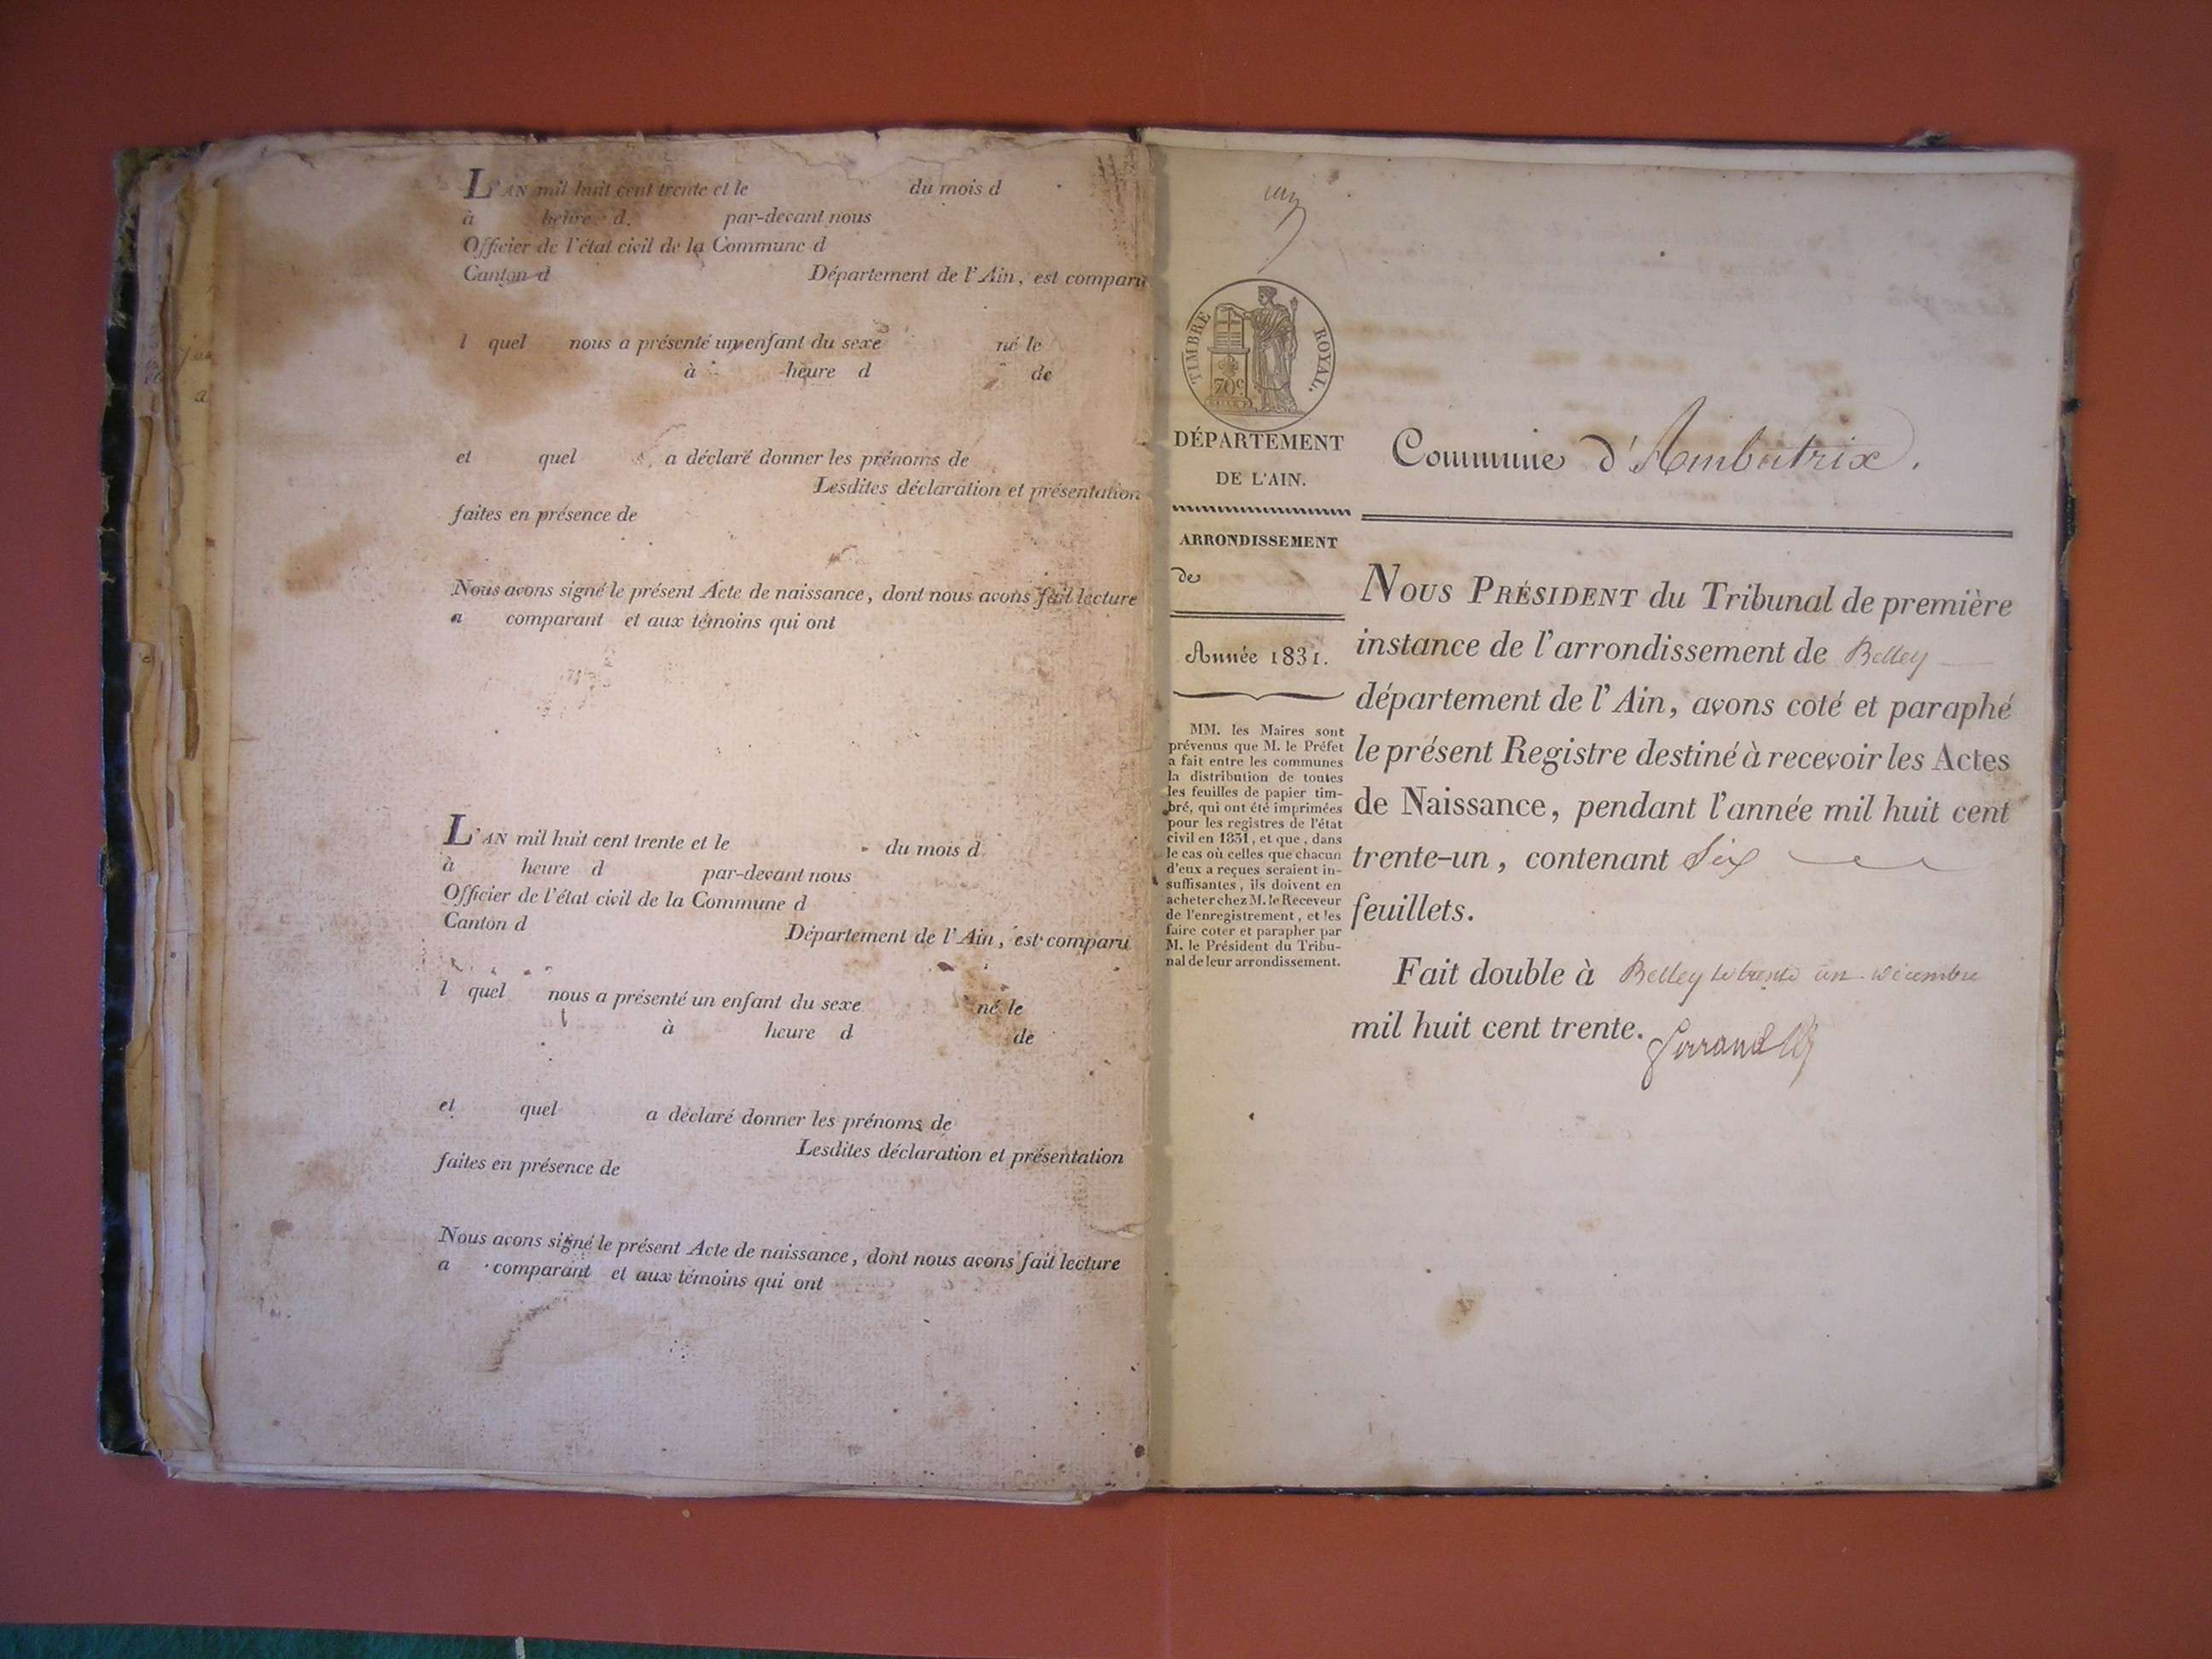 L'AN mil huit cent trente et le du mois d
à heure d. par-devant nous
Officier de l'état civil de la Commune d
Canton d Département de l'Ain, est comparu
l quel nous a présenté un enfant du sexe né le
à heure d de
et quel a déclaré donner les prénoms de
Lesdites déclaration et présentation
faites en présence de
Nous avons signé le présent Acte de naissance, dont nous avons fait lecture
a comparant et aux témoins qui ont
L'AN mil huit cent trente et le du mois d
à heure d par-devant nous
Officier de l'état civil de la Commune d
Canton d Département de l'Ain, est comparu
l quel nous a présenté un enfant du sexe né le
à heure d de
et quel a déclaré donner les prénoms de
Lesdites déclaration et présentation
faites en présence de
Nous avons signé le présent Acte de naissance, dont nous avons fait lecture
a comparant et aux témoins qui ont
un
TIMBRE ROYAL.
70c
DÉPARTEMENT
DE L'AIN.
ARRONDISSEMENT
de
Année 1831.
MM. les Maires sont
prévenus que M. le Préfet
a fait entre les communes
la distribution de toutes
les feuilles de papier tim-
bré, qui ont été imprimées
pour les registres de l'état
civil en 1831, et que, dans
le cas où celles que chacun
d'eux a reçues seraient in-
suffisantes, ils doivent en
acheter chez M. le Receveur
de l'enregistrement, et les
faire coter et parapher par
M. le Président du Tribu-
nal de leur arrondissement.
Commune d'Ambutrix.
NOUS PRÉSIDENT du Tribunal de première
instance de l'arrondissement de Belley
département de l'Ain, avons coté et paraphé
le présent Registre destiné à recevoir les Actes
de Naissance, pendant l'année mil huit cent
trente-un, contenant Six
feuillets.
Fait double à Belley le trente un décembre
mil huit cent trente.